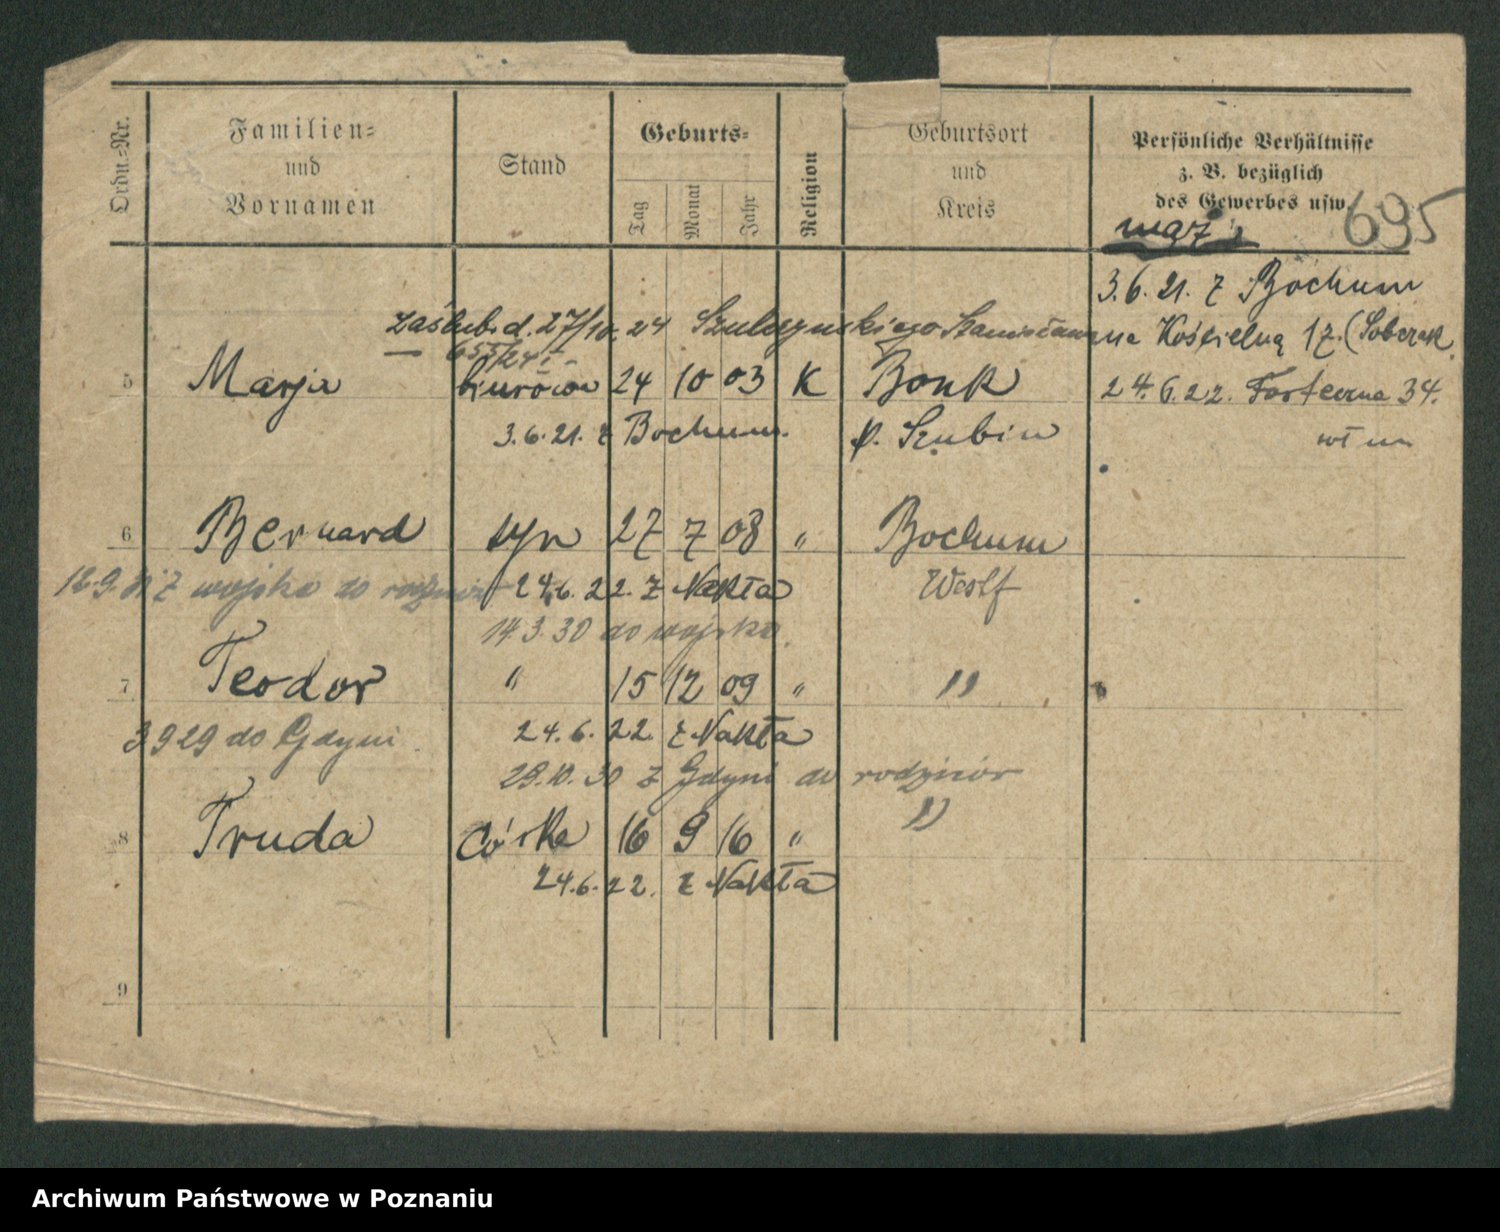 Ordn.-Nr.
Familien-
und
Vornamen
Stand
Geburts-
Tag
Monat
Jahr
Religion
Geburtsort
und
Kreis
Persönliche Verhältnisse
z. B. bezüglich
des Gewerbes usw.
mąż 695
3.6.21. z Bochum
zaślub. d. 27/10.24 Stanisława na Kościelną 17. (Sobczak
655/24
5 Marja biurowa 24 10 03 K Bonk 24.6.22. Forteczna 34.
3.6.21. z Bochum. p. Szubin
6 Bernard syn 27 7 08 " Bochum
z wojska do 24.6.22. z Nakła Westf
14.3.30 do wojska.
7 Teodor " 15 12 09 " "
3 9 29 do Gdyni. 24.6.22. z Nakła
28.10.30 z Gdyni do rodziców
8 Truda córka 16 9 16 " "
24.6.22. z Nakła
9
Archiwum Państwowe w Poznaniu